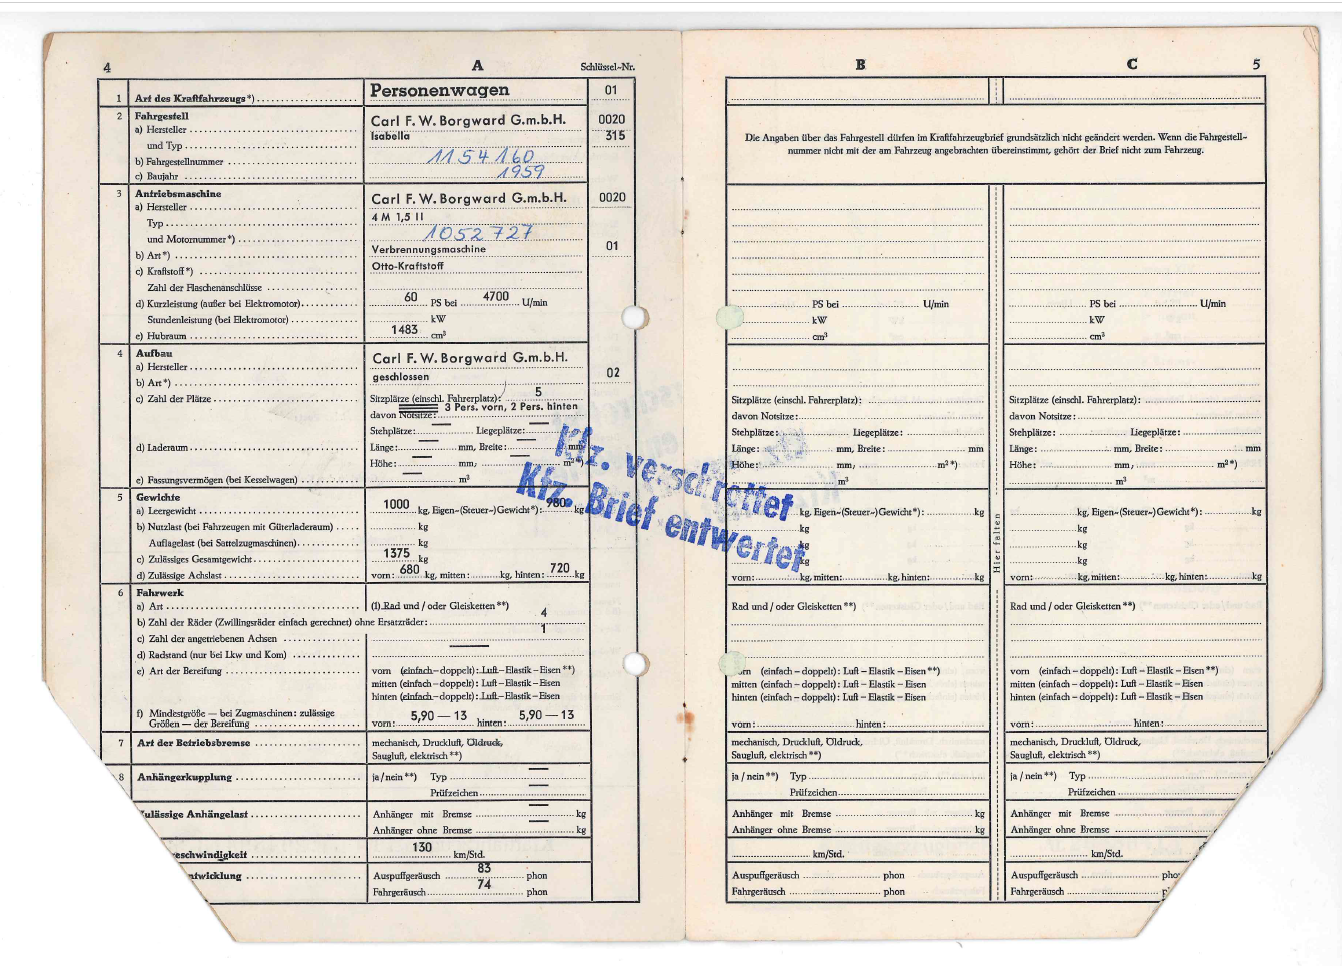 4 A Schlüssel-Nr.
1 Art des Kraftfahrzeugs*) Personenwagen 01
2 Fahrgestell
a) Hersteller Carl F. W. Borgward G.m.b.H. 0020
und Typ Isabella 315
b) Fahrgestellnummer 1154160
c) Baujahr 1959
3 Antriebsmaschine
a) Hersteller Carl F. W. Borgward G.m.b.H. 0020
Typ 4 M 1,5 II
und Motornummer*) 1052727
b) Art*) Verbrennungsmaschine 01
c) Kraftstoff*) Otto-Kraftstoff
Zahl der Flaschenanschlüsse
d) Kurzleistung (außer bei Elektromotor) 60 PS bei 4700 U/min
Stundenleistung (bei Elektromotor) kW
e) Hubraum 1483 cm³
4 Aufbau
a) Hersteller Carl F. W. Borgward G.m.b.H.
b) Art*) geschlossen 02
c) Zahl der Plätze Sitzplätze (einschl. Fahrerplatz): 5
davon Notsitze: 3 Pers. vorn, 2 Pers. hinten
Stehplätze: — Liegeplätze: —
d) Laderaum Länge: — mm, Breite: — mm
Höhe: — mm, — m²*)
e) Fassungsvermögen (bei Kesselwagen) — m³
5 Gewichte
a) Leergewicht 1000 kg, Eigen-(Steuer-)Gewicht*): 980 kg
b) Nutzlast (bei Fahrzeugen mit Güterladeraum) kg
Auflagelast (bei Sattelzugmaschinen) kg
c) Zulässiges Gesamtgewicht 1375 kg
d) Zulässige Achslast vorn: 680 kg, mitten: kg, hinten: 720 kg
6 Fahrwerk
a) Art (1) Rad und / oder Gleisketten**)
b) Zahl der Räder (Zwillingsräder einfach gerechnet) ohne Ersatzräder: 4
c) Zahl der angetriebenen Achsen 1
d) Radstand (nur bei Lkw und Kom) —
e) Art der Bereifung vorn (einfach – doppelt): Luft – Elastik – Eisen**)
mitten (einfach – doppelt): Luft – Elastik – Eisen
hinten (einfach – doppelt): Luft – Elastik – Eisen
f) Mindestgröße — bei Zugmaschinen: zulässige
Größen — der Bereifung vorn: 5,90 — 13 hinten: 5,90 — 13
7 Art der Betriebsbremse mechanisch, Druckluft, Öldruck,
Saugluft, elektrisch**)
8 Anhängerkupplung ja / nein**) Typ —
Prüfzeichen —
Zulässige Anhängelast Anhänger mit Bremse — kg
Anhänger ohne Bremse — kg
geschwindigkeit 130 km/Std.
entwicklung Auspuffgeräusch 83 phon
Fahrgeräusch 74 phon
Kfz. verschrottet
Kfz. Brief entwertet
B C 5
Die Angaben über das Fahrgestell dürfen im Kraftfahrzeugbrief grundsätzlich nicht geändert werden. Wenn die Fahrgestell-
nummer nicht mit der am Fahrzeug angebrachten übereinstimmt, gehört der Brief nicht zum Fahrzeug.
PS bei U/min PS bei U/min
kW kW
cm³ cm³
Sitzplätze (einschl. Fahrerplatz): Sitzplätze (einschl. Fahrerplatz):
davon Notsitze: davon Notsitze:
Stehplätze: Liegeplätze: Stehplätze: Liegeplätze:
Länge: mm, Breite: mm Länge: mm, Breite: mm
Höhe: mm, m²*) Höhe: mm, m²*)
m³ m³
kg, Eigen-(Steuer-)Gewicht*): kg kg, Eigen-(Steuer-)Gewicht*): kg
kg kg
kg kg
kg kg
vorn: kg, mitten: kg, hinten: kg vorn: kg, mitten: kg, hinten: kg
Hier falten
Rad und / oder Gleisketten**) Rad und / oder Gleisketten**)
vorn (einfach – doppelt): Luft – Elastik – Eisen**) vorn (einfach – doppelt): Luft – Elastik – Eisen**)
mitten (einfach – doppelt): Luft – Elastik – Eisen mitten (einfach – doppelt): Luft – Elastik – Eisen
hinten (einfach – doppelt): Luft – Elastik – Eisen hinten (einfach – doppelt): Luft – Elastik – Eisen
vorn: hinten: vorn: hinten:
mechanisch, Druckluft, Öldruck, mechanisch, Druckluft, Öldruck,
Saugluft, elektrisch**) Saugluft, elektrisch**)
ja / nein**) Typ ja / nein**) Typ
Prüfzeichen Prüfzeichen
Anhänger mit Bremse kg Anhänger mit Bremse
Anhänger ohne Bremse kg Anhänger ohne Bremse
km/Std. km/Std.
Auspuffgeräusch phon Auspuffgeräusch pho
Fahrgeräusch phon Fahrgeräusch p